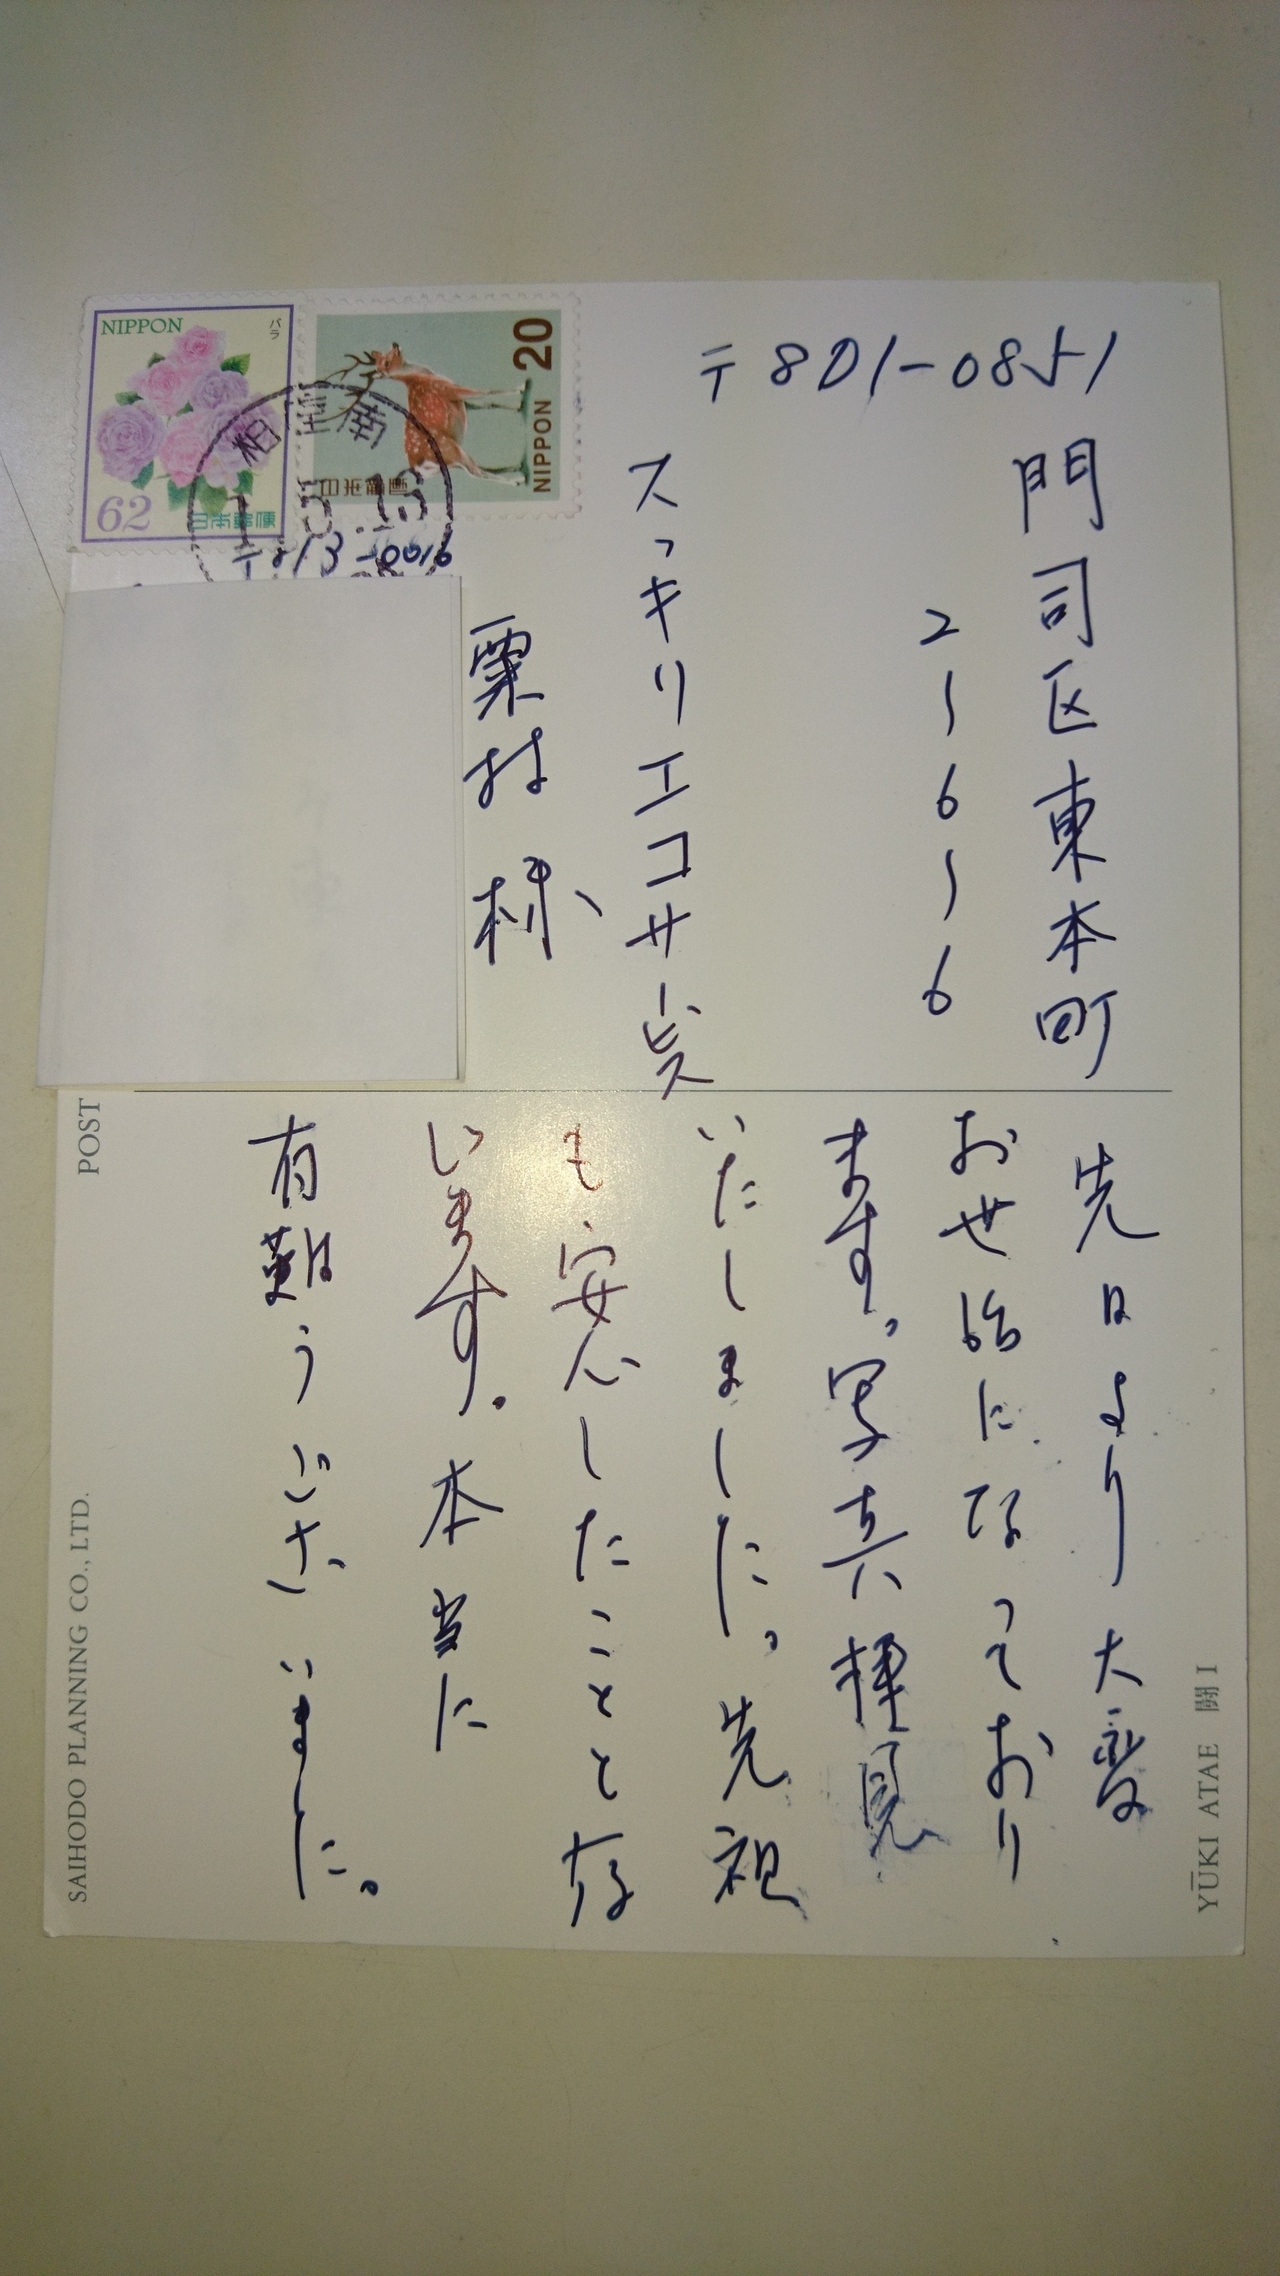 NIPPON
バラ
62
日本郵便
20
NIPPON
〒801-0851
門司区東本町
2-6-6
スッキリエコサービス
粟村様
先日より大変
お世話になっており
ます。写真拝見
いたしました。先祖
も安心したことと存
います。本当に
有難うございました。
POST
SAIHODO PLANNING CO., LTD.
YŪKI ATAE 闘 I